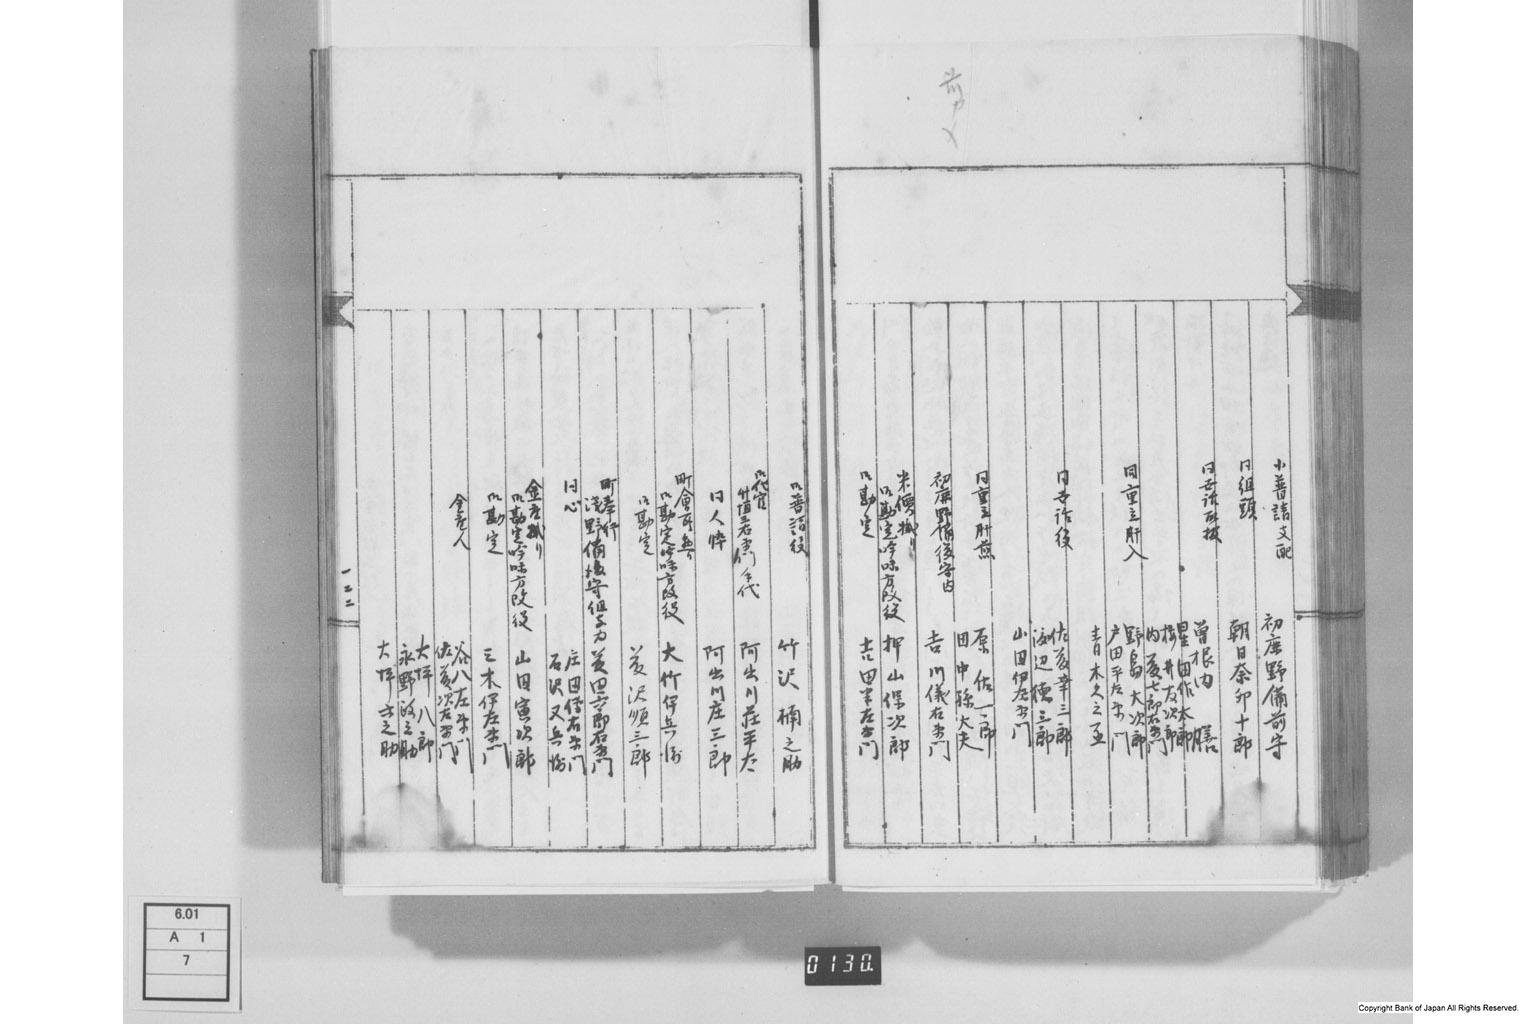 小普請支配
初鹿野備前守
同組頭
朝日奈卯十郎
同世話取扱
曽根内膳
星田作太郎
桜井友次郎
内藤七郎右衛門
同重立肝入
野島大次郎
戸田平左衛門
青木久之丞
同世話役
佐藤幸三郎
渡辺徳三郎
山田伊左衛門
同重立肝煎
原佐一郎
田中孫大夫
初鹿野備後守内
吉川儀右衛門
米價掛り
御勘定吟味方改役
押山保次郎
御勘定
吉田半左衛門
御普請役
竹沢楠之助
御代官
竹垣三右衛門手代
阿出川荘平太
同人悴
阿出川庄三郎
町會所掛り
御勘定吟味方改役
大竹伊兵衛
御勘定
藤沢順三郎
町奉行
浅野備後守組与力
藤田六郎右衛門
同心
庄田伝右衛門
石沢又兵衛
金座掛り
御勘定吟味方改役
山田寅次郎
御勘定
三木伊左衛門
金座人
谷八左衛門
佐藤次右衛門
大坪八郎
永野政之助
大坪吉之助
一二二
6.01
A 1
7
0130.
Copyright Bank of Japan All Rights Reserved.